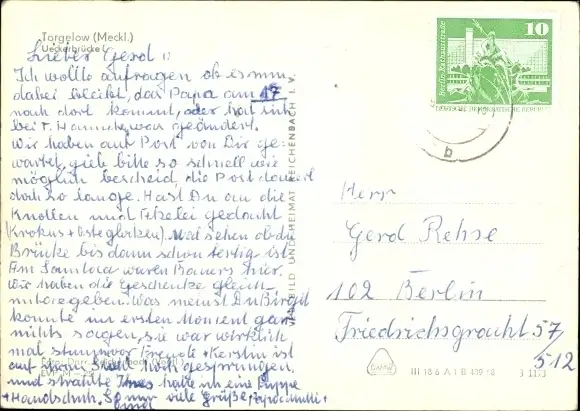 Torgelow (Meckl.)
Ueckerbrücke
Lieber Gerd!
Ich wollte anfragen ob es nun
dabei bleibt, das Papa am 17
nach dort kommt, oder hat sich
bei T. Hannchen was geändert.
Wir haben auf Post von Dir ge-
wartet, gieb bitte so schnell wie
möglich bescheid, die Post dauert
doch so lange. Hast Du an die
Knollen und Akelei gedacht
(Krokus + Osterglocken). Mal sehen ob die
Brücke bis dann schon fertig ist.
Am waren Bauers hier.
Wir haben die Geschenke gleich
mitgegeben. Was meinst Du Birgit
konnte im ersten Moment gar
nichts sagen, sie war wirklich
mal stumm vor Freude + Kerstin ist
auf hoch gesprungen,
und strahlte hatte ich eine Puppe
+ Handschuh. So nur viele Grüße
BILD UND HEIMAT REICHENBACH I. V.
10
Berlin-Rathausstraße
b
Herr
Gerd Rehse
102 Berlin
Friedrichsgracht 57/
512
III 18 6 A 1 B